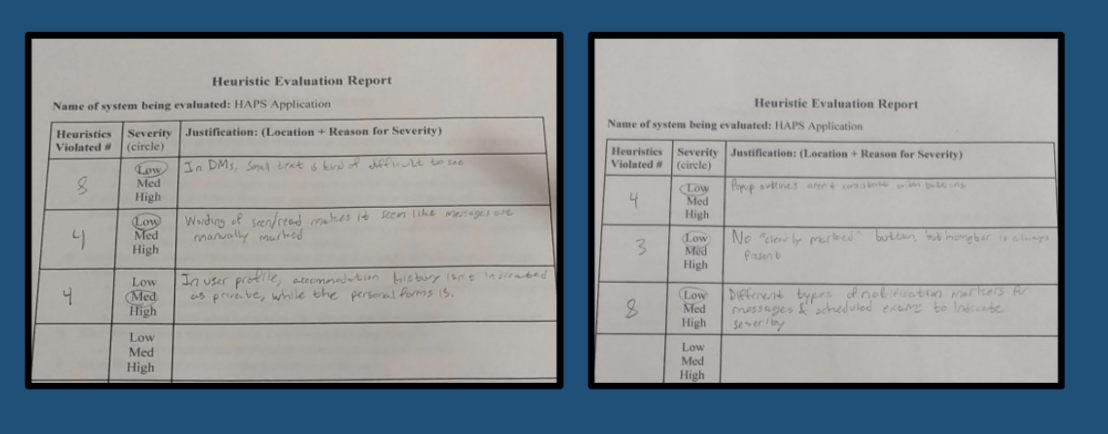 Heuristic Evaluation Report
Name of system being evaluated: HAPS Application
Heuristics Severity Justification: (Location + Reason for Severity)
Violated # (circle)
8
Low
Med
High
In DMs, small text is kind of difficult to see
4
Low
Med
High
Wording of seen/read makes it seem like messages are
manually marked
4
Low
Med
High
In user profile, accommodation history isn't indicated
as private, while the personal forms is.
Low
Med
High
Heuristic Evaluation Report
Name of system being evaluated: HAPS Application
Heuristics Severity Justification: (Location + Reason for Severity)
Violated # (circle)
4
Low
Med
High
Popup outlines aren't consistent with buttons
3
Low
Med
High
No "clearly marked" button, but homebar is always
present
8
Low
Med
High
Different types of notification markers for
messages & scheduled exams to indicate
severity
Low
Med
High